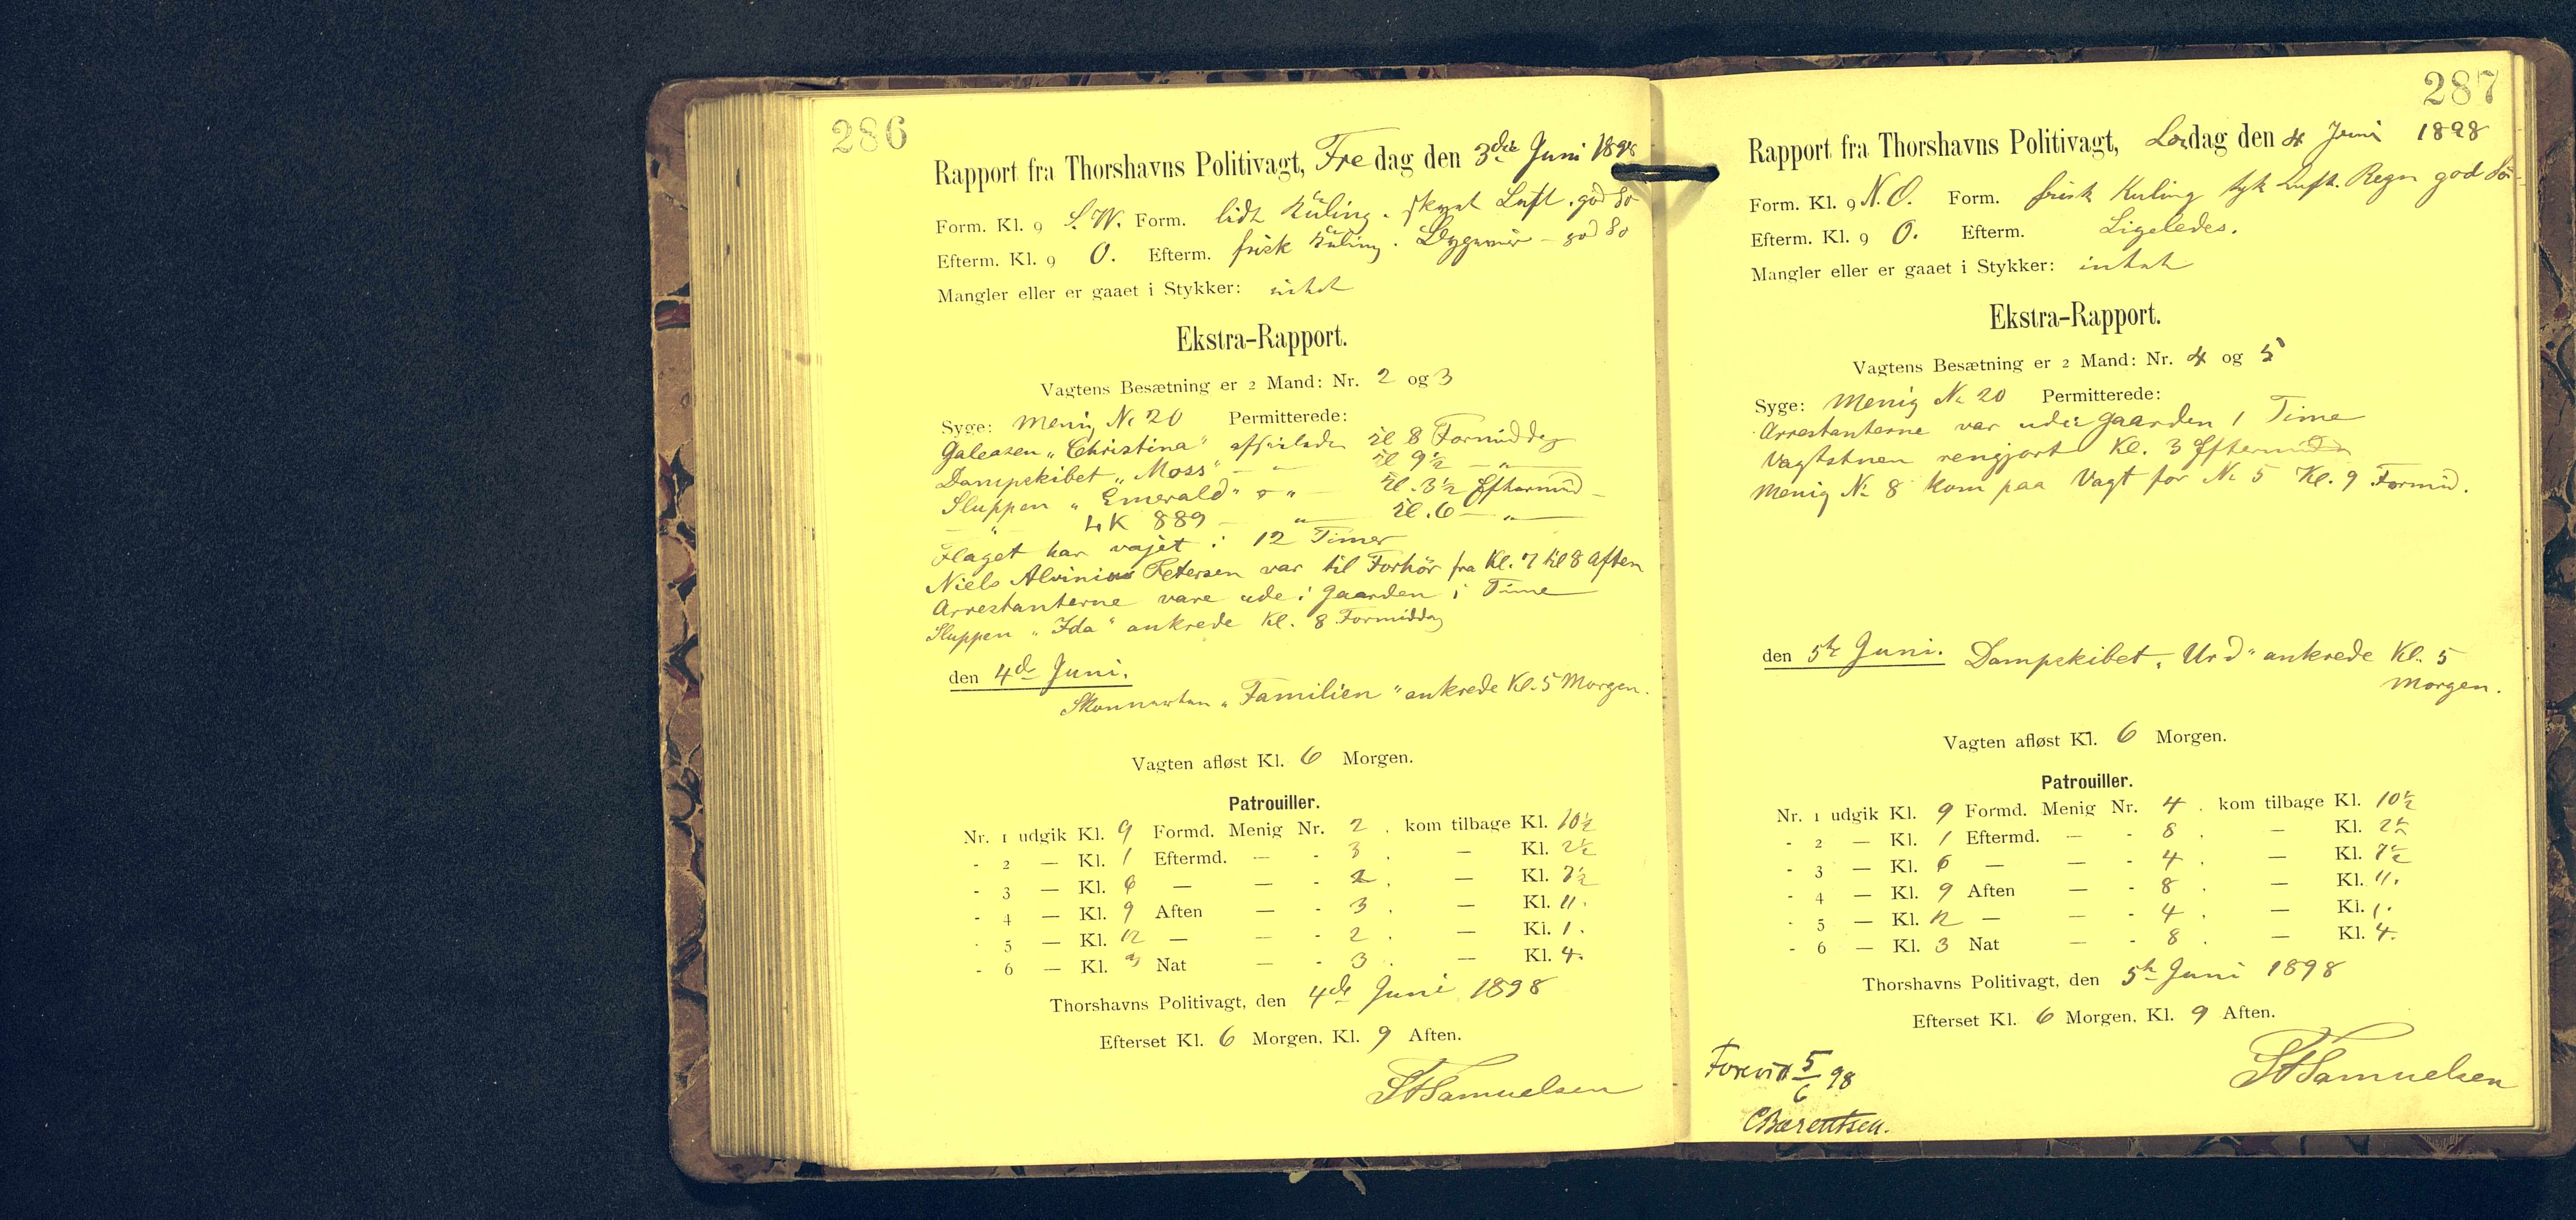 286
Rapport fra Thorshavns Politivagt, Fredag den 3die Juni 1898
Form. Kl. 9 S.W. Form. lidt Kuling. skyet Luft. god So
Efterm. Kl. 9 O. Efterm. frisk Kuling. - god So
Mangler eller er gaaet i Stykker: intet
Ekstra-Rapport.
Vagtens Besætning er 2 Mand: Nr. 2 og 3
Syge: Menig No 20 Permitterede:
Galeasen „Christina" afseilede Kl 8 Formiddag
Dampskibet „Moss" — „ — Kl 9½ — „ —
Sluppen „Emerald" — „ — Kl. 3½ Eftermid —
— „ — LK 889 — „ — Kl. 6 — „ —
Flaget har vajet i 12 Timer
Niels Alvinius Petersen var til Forhör fra Kl. 7 til 8 Aften
Arrestanterne vare ude i Gaarden 1 Time
Sluppen „Ida" ankrede Kl. 8 Formiddag
den 4de Juni.
Skonnerten „Familien" ankrede Kl. 5 Morgen.
Vagten afløst Kl. 6 Morgen.
Patrouiller.
Nr. 1 udgik Kl. 9 Formd. Menig Nr. 2 . kom tilbage Kl. 10½
- 2 — Kl. 1 Eftermd. — - 3 . — Kl. 2½
- 3 — Kl. 6 — — - 2 . — Kl. 7½
- 4 — Kl. 9 Aften — - 3 . — Kl. 11.
- 5 — Kl. 12 — — - 2 . — Kl. 1.
- 6 — Kl. 3 Nat — - 3 . — Kl. 4.
Thorshavns Politivagt, den 4de Juni 1898
Efterset Kl. 6 Morgen, Kl. 9 Aften.
Samuelsen
287
Rapport fra Thorshavns Politivagt, Lørdag den 4 Juni 1898
Form. Kl. 9 N.O. Form. frisk Kuling tyk Luft. Regn god Sö
Efterm. Kl. 9 O. Efterm. Ligeledes.
Mangler eller er gaaet i Stykker: intet
Ekstra-Rapport.
Vagtens Besætning er 2 Mand: Nr. 4 og 5
Syge: Menig No 20 Permitterede:
Arrestanterne var ude i Gaarden 1 Time
Vagtstuen rengjort Kl. 3 Eftermid
Menig No 8 kom paa Vagt for No 5 Kl. 9 Formid.
den 5te Juni. Dampskibet „Urd" ankrede Kl. 5
Morgen.
Vagten afløst Kl. 6 Morgen.
Patrouiller.
Nr. 1 udgik Kl. 9 Formd. Menig Nr. 4 . kom tilbage Kl. 10½
- 2 — Kl. 1 Eftermd. — - 8 . — Kl. 2½
- 3 — Kl. 6 — — - 4 . — Kl. 7½
- 4 — Kl. 9 Aften — - 8 . — Kl. 11.
- 5 — Kl. 12 — — - 4 . — Kl. 1.
- 6 — Kl. 3 Nat — - 8 . — Kl. 4.
Thorshavns Politivagt, den 5te Juni 1898
Efterset Kl. 6 Morgen, Kl. 9 Aften.
Samuelsen
Forevist 5/6 98
CBærentsen.